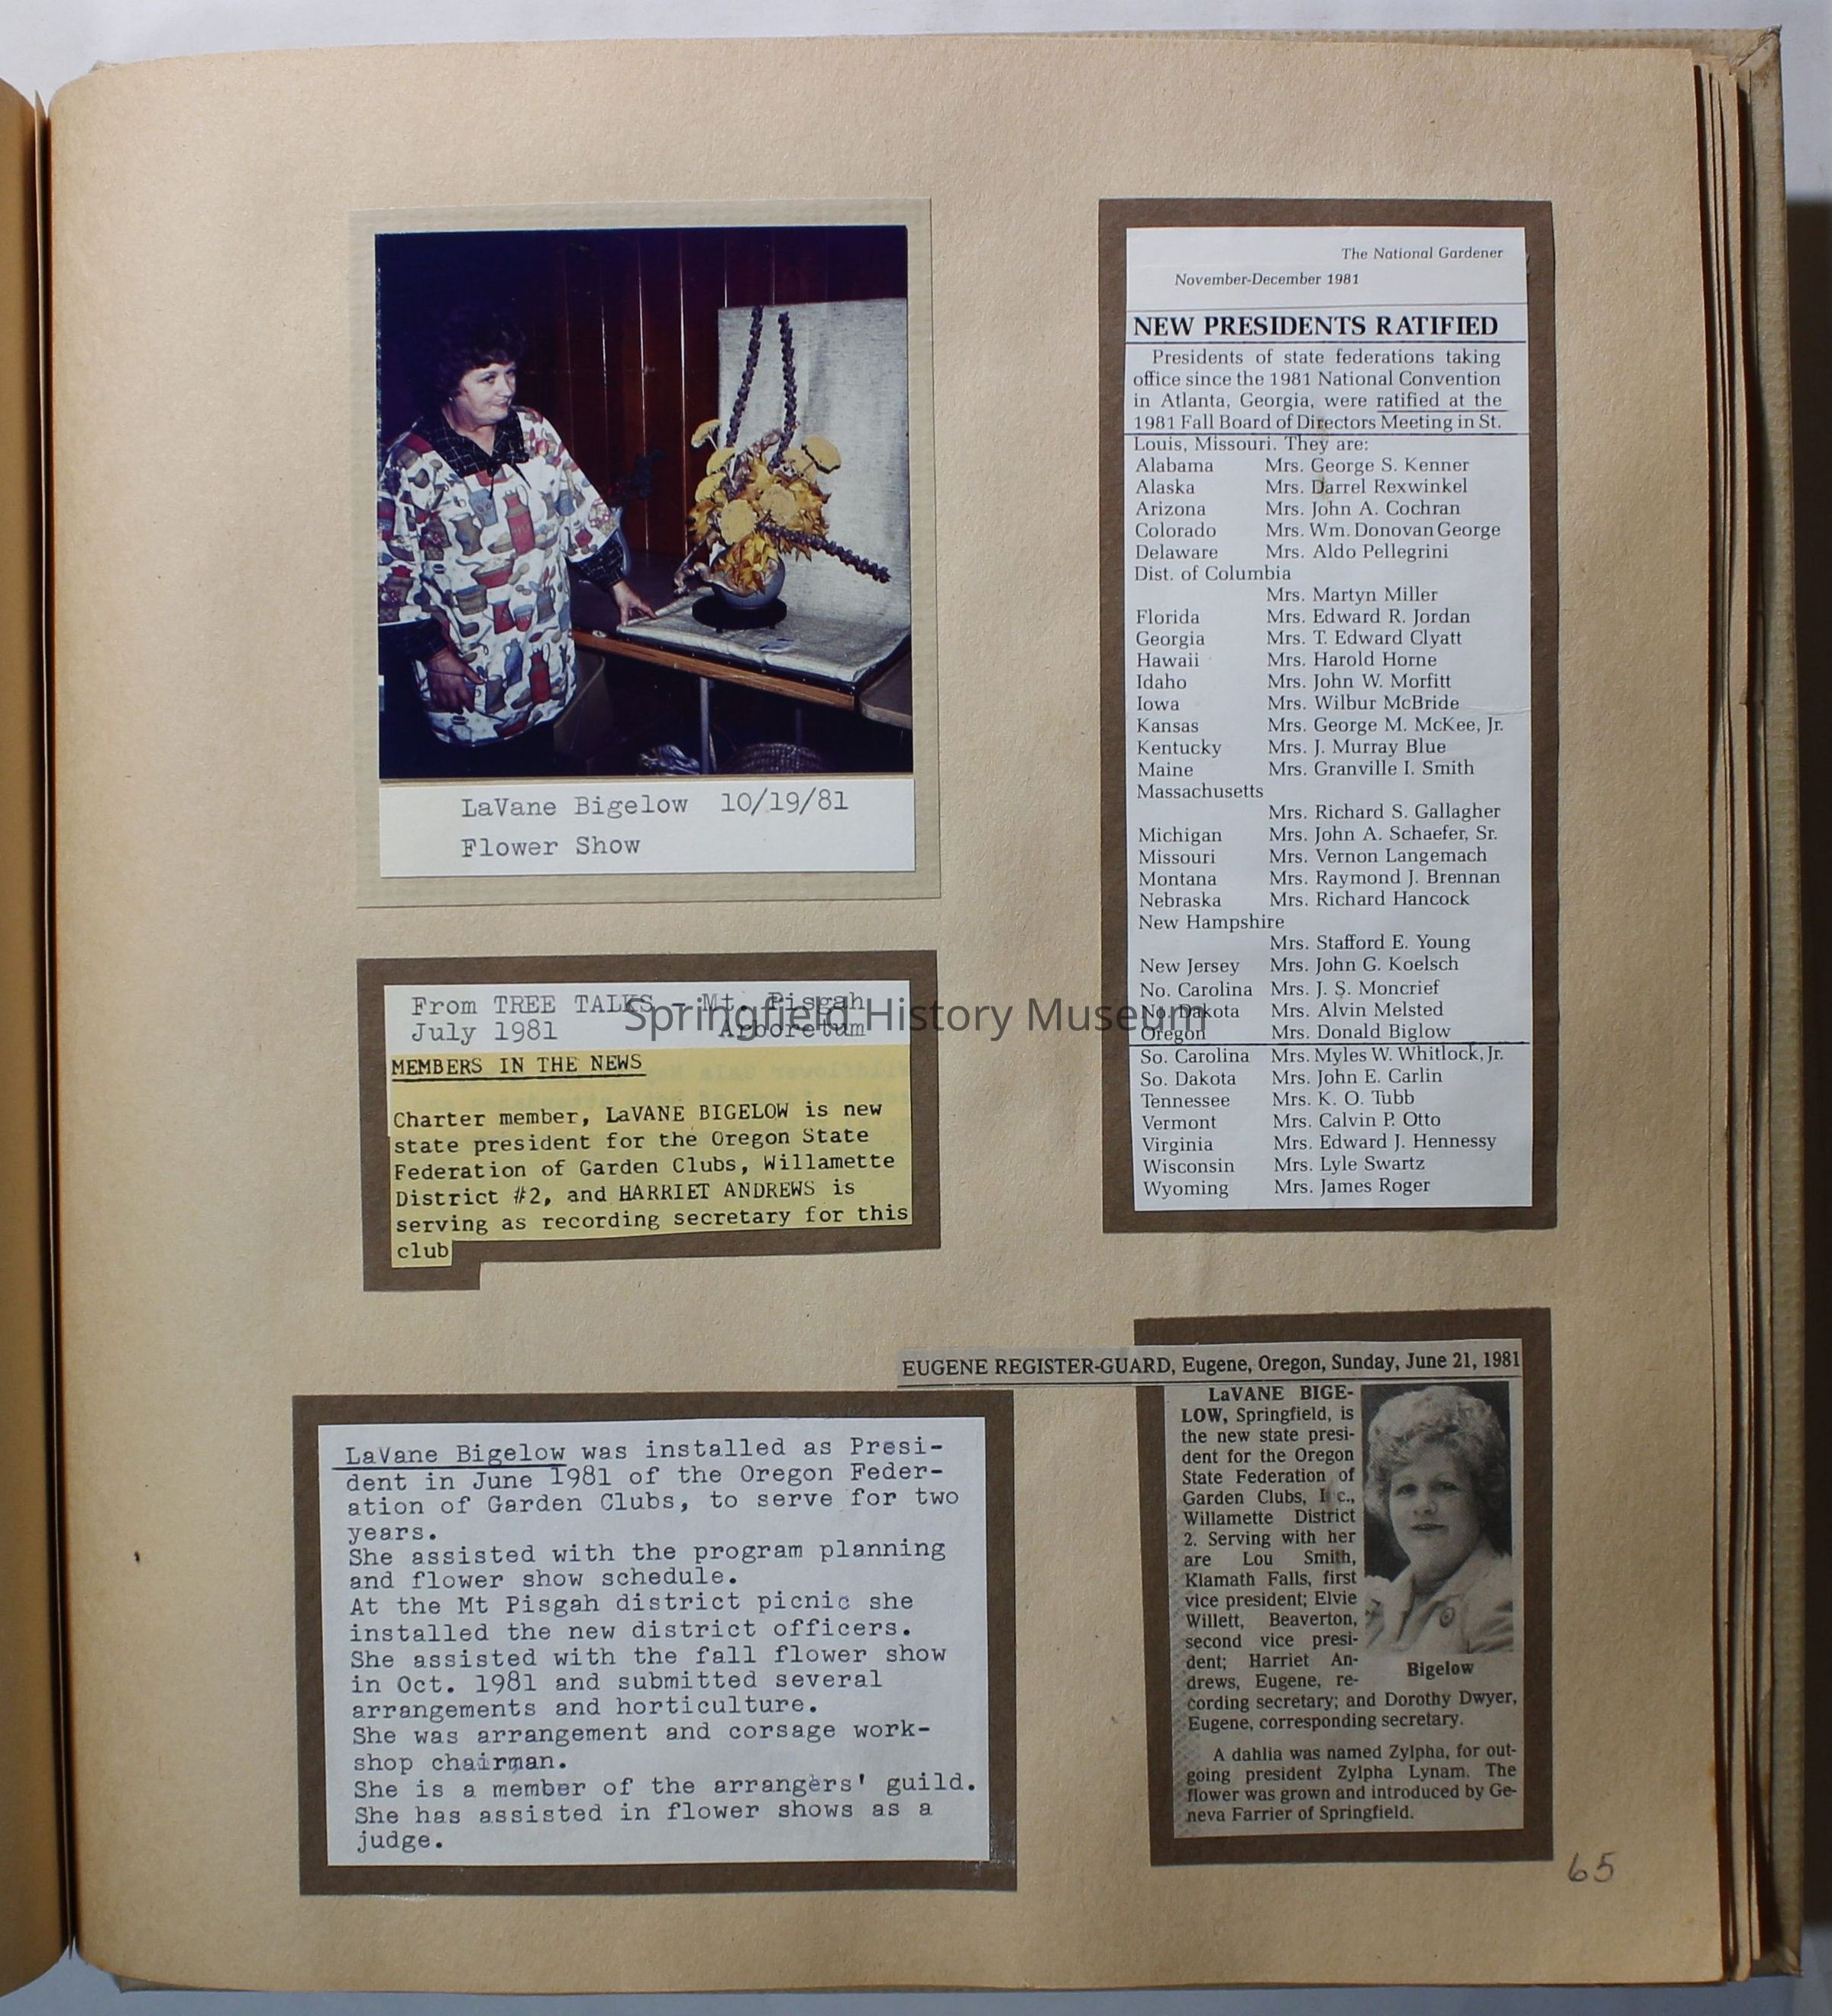 LaVane Bigelow 10/19/81
Flower Show
From TREE TALKS - Mt. Pisgah
July 1981 Arboretum
MEMBERS IN THE NEWS
Charter member, LaVANE BIGELOW is new
state president for the Oregon State
Federation of Garden Clubs, Willamette
District #2, and HARRIET ANDREWS is
serving as recording secretary for this
club
LaVane Bigelow was installed as Presi-
dent in June 1981 of the Oregon Feder-
ation of Garden Clubs, to serve for two
years.
She assisted with the program planning
and flower show schedule.
At the Mt Pisgah district picnic she
installed the new district officers.
She assisted with the fall flower show
in Oct. 1981 and submitted several
arrangements and horticulture.
She was arrangement and corsage work-
shop chairman.
She is a member of the arrangers' guild.
She has assisted in flower shows as a
judge.
The National Gardener
November-December 1981
NEW PRESIDENTS RATIFIED
Presidents of state federations taking
office since the 1981 National Convention
in Atlanta, Georgia, were ratified at the
1981 Fall Board of Directors Meeting in St.
Louis, Missouri. They are:
Alabama Mrs. George S. Kenner
Alaska Mrs. Darrel Rexwinkel
Arizona Mrs. John A. Cochran
Colorado Mrs. Wm. Donovan George
Delaware Mrs. Aldo Pellegrini
Dist. of Columbia
Mrs. Martyn Miller
Florida Mrs. Edward R. Jordan
Georgia Mrs. T. Edward Clyatt
Hawaii Mrs. Harold Horne
Idaho Mrs. John W. Morfitt
Iowa Mrs. Wilbur McBride
Kansas Mrs. George M. McKee, Jr.
Kentucky Mrs. J. Murray Blue
Maine Mrs. Granville I. Smith
Massachusetts
Mrs. Richard S. Gallagher
Michigan Mrs. John A. Schaefer, Sr.
Missouri Mrs. Vernon Langemach
Montana Mrs. Raymond J. Brennan
Nebraska Mrs. Richard Hancock
New Hampshire
Mrs. Stafford E. Young
New Jersey Mrs. John G. Koelsch
No. Carolina Mrs. J. S. Moncrief
No. Dakota Mrs. Alvin Melsted
Oregon Mrs. Donald Biglow
So. Carolina Mrs. Myles W. Whitlock, Jr.
So. Dakota Mrs. John E. Carlin
Tennessee Mrs. K. O. Tubb
Vermont Mrs. Calvin P. Otto
Virginia Mrs. Edward J. Hennessy
Wisconsin Mrs. Lyle Swartz
Wyoming Mrs. James Roger
Springfield History Museum
EUGENE REGISTER-GUARD, Eugene, Oregon, Sunday, June 21, 1981
LaVANE BIGE-
LOW, Springfield, is
the new state presi-
dent for the Oregon
State Federation of
Garden Clubs, I c.,
Willamette District
2. Serving with her
are Lou Smith,
Klamath Falls, first
vice president; Elvie
Willett, Beaverton,
second vice presi-
dent; Harriet An-
drews, Eugene, re-
cording secretary; and Dorothy Dwyer,
Eugene, corresponding secretary.
Bigelow
A dahlia was named Zylpha, for out-
going president Zylpha Lynam. The
flower was grown and introduced by Ge-
neva Farrier of Springfield.
65